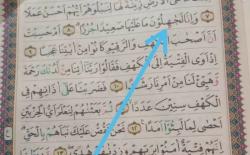 عَلَى ٱلْأَرْضِ زِينَةً لَّهَا لِنَبْلُوَهُمْ أَيُّهُمْ أَحْسَنُ عَمَلًا
٧ وَإِنَّا لَجَٰهِلُونَ مَا عَلَيْهَا صَعِيدًا جُرُزًا ٨ أَمْ حَسِبْتَ
أَنَّ أَصْحَٰبَ ٱلْكَهْفِ وَٱلرَّقِيمِ كَانُوا۟ مِنْ ءَايَٰتِنَا عَجَبًا
٩ إِذْ أَوَى ٱلْفِتْيَةُ إِلَى ٱلْكَهْفِ فَقَالُوا۟ رَبَّنَآ ءَاتِنَا مِن لَّدُنكَ رَحْمَةً
وَهَيِّئْ لَنَا مِنْ أَمْرِنَا رَشَدًا ١٠ فَضَرَبْنَا عَلَىٰٓ ءَاذَانِهِمْ فِى
ٱلْكَهْفِ سِنِينَ عَدَدًا ١١ ثُمَّ بَعَثْنَٰهُمْ لِنَعْلَمَ أَىُّ ٱلْحِزْبَيْنِ
أَحْصَىٰ لِمَا لَبِثُوٓا۟ أَمَدًا ١٢ نَّحْنُ نَقُصُّ عَلَيْكَ نَبَأَهُم بِٱلْحَقِّ